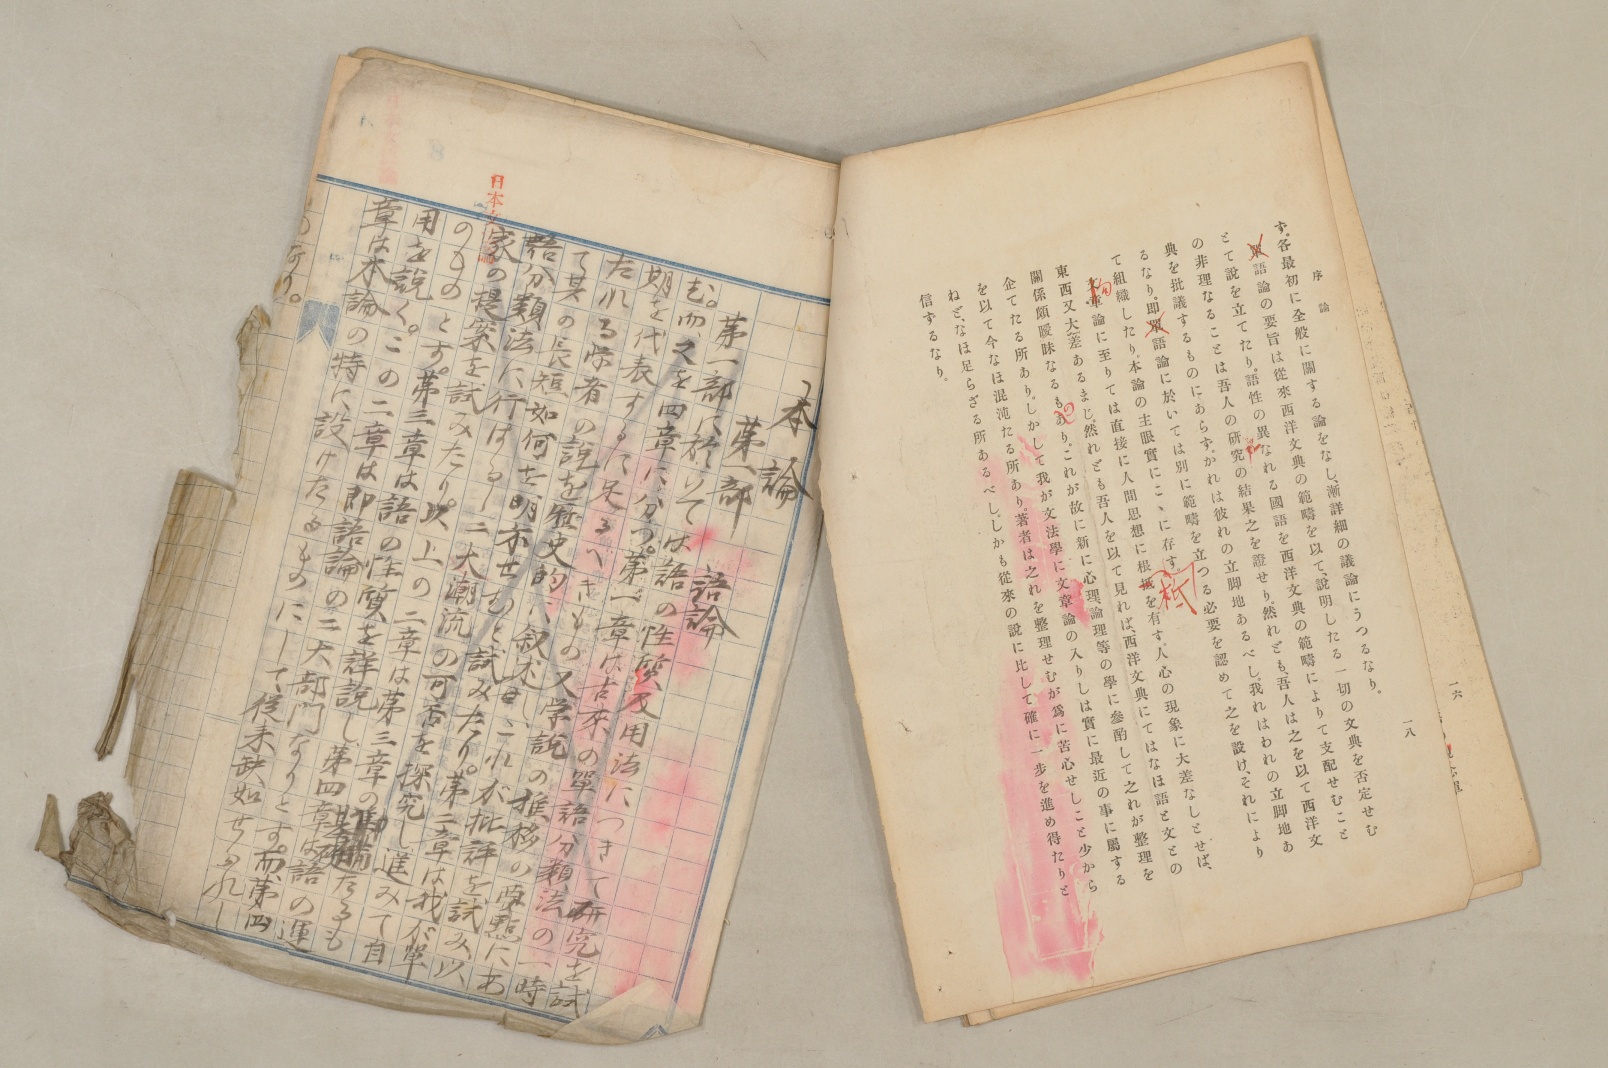 一六
一八
序論
す。各最初に全般に關する論をなし、漸詳細の議論にうつるなり。
單語論の要旨は從來西洋文典の範疇を以て、說明したる一切の文典を否定せむ
とて說を立てたり。語性の異なれる國語を西洋文典の範疇によりて支配せむこと
の非理なることは吾人の研究の結果之を證せり。然れども吾人は之を以て西洋文
典を批議するものにあらず。かれは彼れの立脚地あるべし。我れはわれの立脚地あ
るなり。即單語論に於いては別に範疇を立つる必要を認めて之を設け、それにより
て組織したり。本論の主眼實にこゝに存す。
文章論に至りては直接に人間思想に根抵を有す。人心の現象に大差なしとせば、
柢
東西又大差あるまじ。然れども吾人を以て見れば、西洋文典にてはなほ語と文との
關係頗曖昧なるもあり。これが故に新に心理、論理等の學に參酌して之れが整理を
の
企てたる所あり。しかして我が文法學に文章論の入りしは實に最近の事に屬する
を以て今なほ混沌たる所あり。著者は之れを整理せむが爲に苦心せしこと少から
ねど、なほ足らざる所あるべし。しかも從來の說に比して確に一步を進め得たりと
信ずるなり。
本論
第一部 語論
第一部に於いては語の性質及用法につきて研究を試
む。而、之を四章に分つ。第一章は古來の單語分類法の一時
期を代表するに足るべきもの又学説の推移の要點にあ
たれる学者の説を歴史的に叙述し、これが批評を試み、以
て其の長短如何を明示せむと試みたり。第二章は我が單
語分類法に行はるゝ二大潮流の可否を探究し進みて自
家の提案を試みたり。以上の二章は第三章の準備たるも
のものとす。第三章は語の性質を詳説し、第四章は語の運
用を説く。この二章は即語論の二大部門なりとす。而、第四
章は本論の特に設けたるものにして、從来缺如せられし
ものなり。